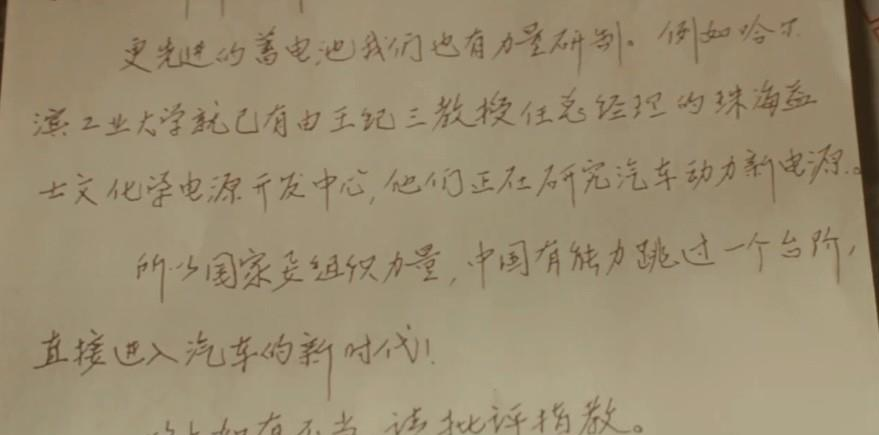 更先进的蓄电池我们也有力量研制。例如哈尔
滨工业大学就已有由王纪三教授任总经理的珠海益
士文化学电源开发中心，他们正在研究汽车动力新电源。
所以国家要组织力量，中国有能力跳过一个台阶，
直接进入汽车的新时代！
如有不当，请批评指教。